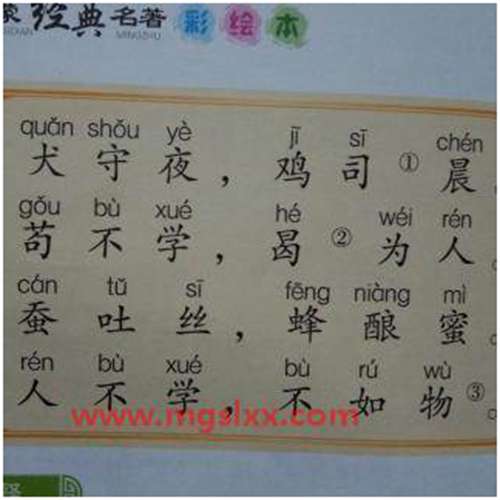 经典名著 彩绘本
DIAN MINGZHU
quǎn shǒu yè jī sī chén
犬守夜，鸡司①晨
gǒu bù xué hé wéi rén
苟不学，曷②为人。
cán tǔ sī fēng niàng mì
蚕吐丝，蜂酿蜜。
rén bù xué bù rú wù
人不学，不如物③
www.mgslxx.com